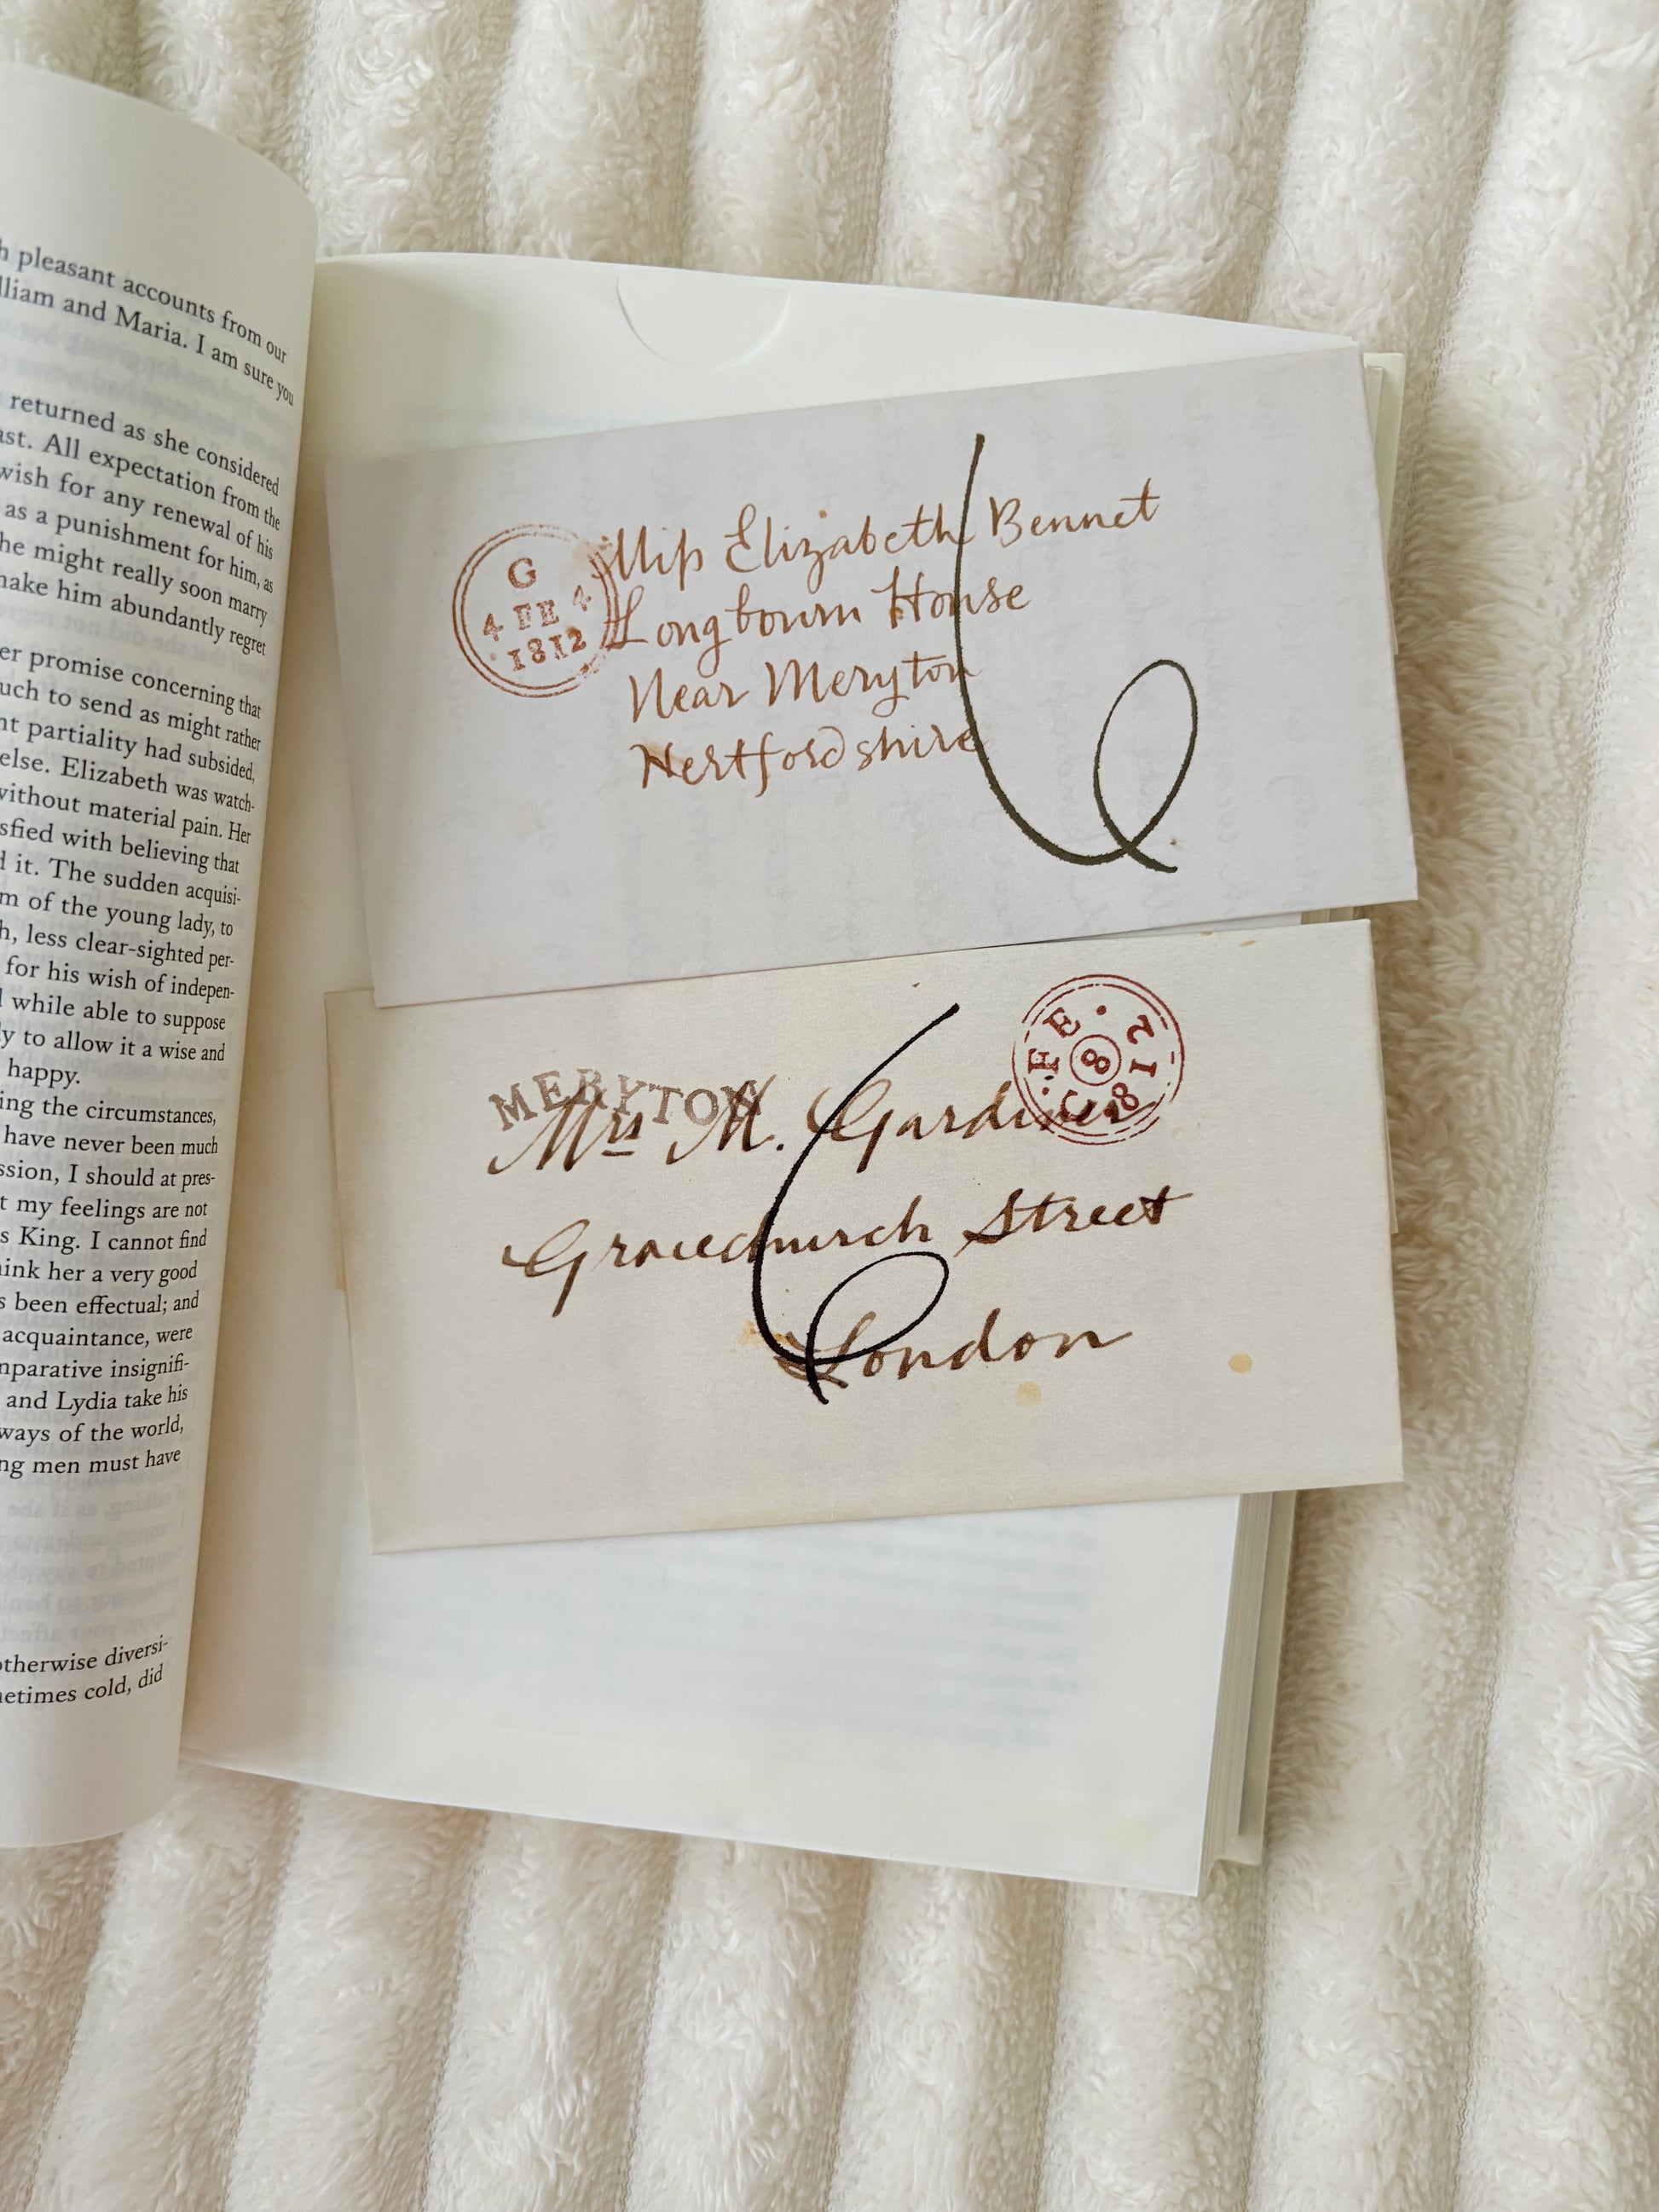 h pleasant accounts from our
lliam and Maria. I am sure you
returned as she considered
ast. All expectation from the
wish for any renewal of his
as a punishment for him, as
he might really soon marry
make him abundantly regret
er promise concerning that
uch to send as might rather
nt partiality had subsided,
else. Elizabeth was watch-
without material pain. Her
sfied with believing that
d it. The sudden acquisi-
m of the young lady, to
h, less clear-sighted per-
for his wish of indepen-
l while able to suppose
ly to allow it a wise and
happy.
ing the circumstances,
have never been much
ssion, I should at pres-
t my feelings are not
s King. I cannot find
hink her a very good
s been effectual; and
acquaintance, were
mparative insignifi-
and Lydia take his
ways of the world,
ng men must have
otherwise diversi-
metimes cold, did
G
4 FE 4
1812
Miſs Elizabeth Bennet
Longbourn House
Near Meryton
Hertfordshire
MERYTON
C · FE · 1812
8
Mrs M. Gardiner
Gracechurch Street
London